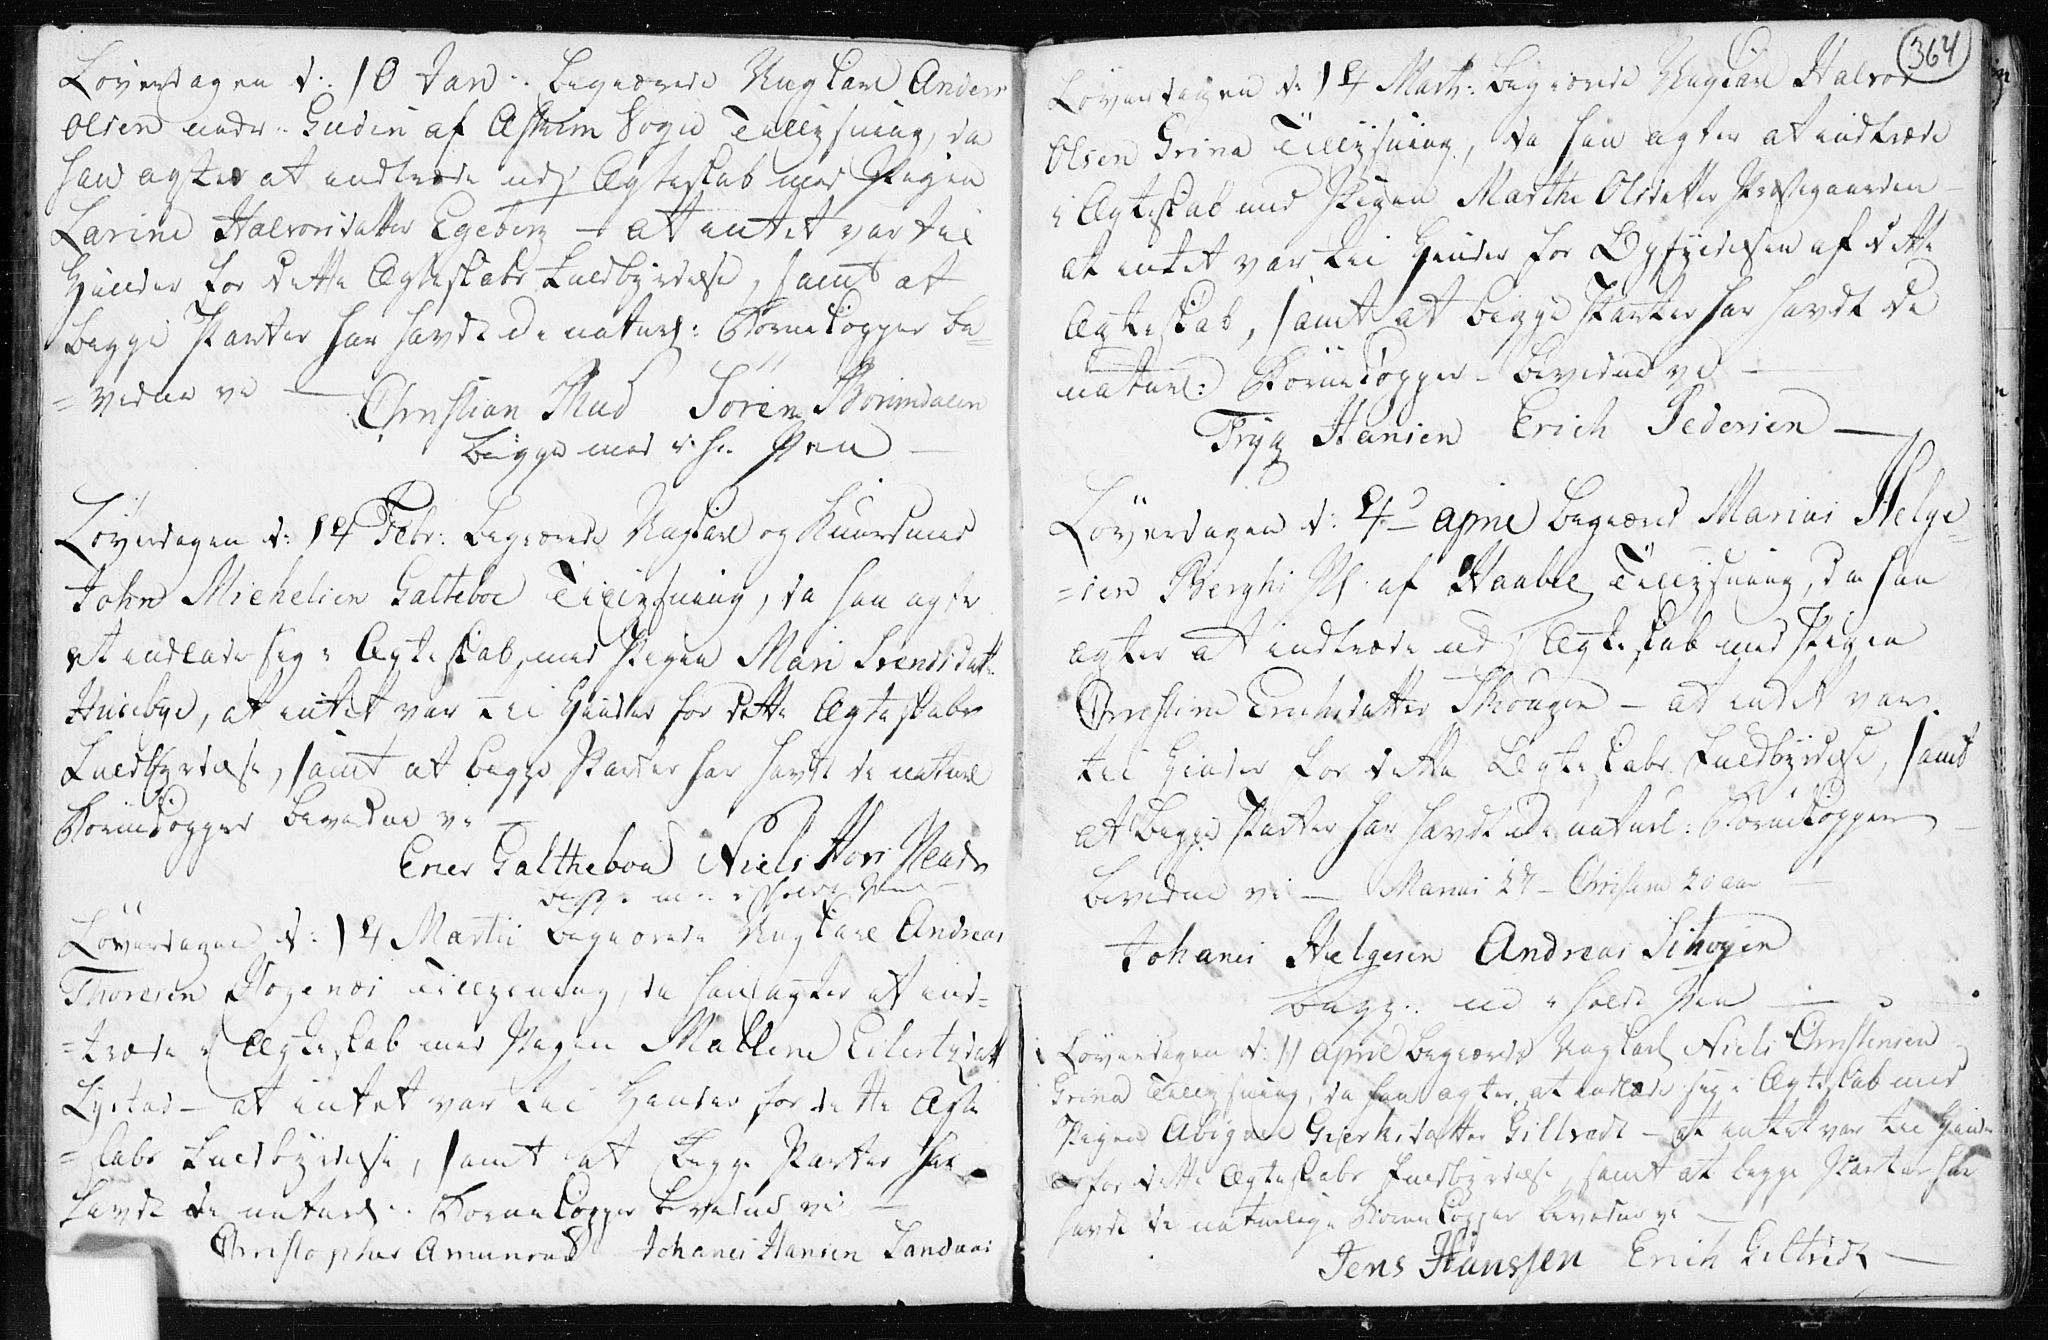 Löverdagen d: 10 Jan: begiærede Ungkarl Anders
Olsen nedr: Guden af Askim Sogn Tillysning, da
han agter at indtræde udj Ægteskab med Pigen
Larine Halvorsdatter Egeberg – at intet var til
Hinder for dette Ægteskabs Fuldbyrdelse, samt at
begge Parter har havdt de naturl: Börnekopper be=
=vidne vi — Christian Rud Sören
begge med i h: Pen —
Löverdagen d: 14 Febr: begiærede Ungkarl og
John Michelsen Galteboe Tillysning, da han agter
at indlade sig i Ægteskab, med Pigen Mari Svendsdatt:
Husebye, at intet var til Hinder for dette Ægteskabs
Fuldbyrdelse, samt at begge Parter har havdt de naturl
Börnekopper bevidne vi —
Ener Galtheboe Niels
begge med i holdt Pen —
Löverdagen d: 14 Martii begiærede Ungkarl Andreas
Thoresen Tillysning, da han agter at ind=
=træde i Ægteskab med Pigen Mallene Eilertzdatt
Lystad – at intet var til Hinder for dette Ægte
=skabs Fuldbyrdelse, samt at begge Parter har
havdt de naturl: Börnekopper bevidne vi —
Christopher Amunrud Johanes Hansen Sandaas
364
Löverdagen d: 14 Marti: begiærede Ungkarl Halvor
Olsen Grina Tillysning, da han agter at indtræde
i Ægteskab med Pigen Marthe Olsdatter Præstegaarden –
at intet var til Hinder for Opfyldelsen af dette
Ægteskab, samt at begge Parter har havdt de
naturl: Börnekopper – bevidne vi —
Tryg Hansen Erich Pedersen —
Löverdagen d: 4de april begiærede Marius Helge=
=sen Berghs Pl: af Haabøl Tillysning, da han
agter at indtræde udj Ægteskab med Pigen
Christine Erichsdatter Skougen – at intet var
til Hinder for dette Ægteskabs Fuldbyrdelse, samt
at begge Parter har havdt de naturl: Börnekopper –
bevidne vi — Marius 27 – Christine 20 aar —
Johanes Helgesen Andreas Schogen
begge med i holdt Pen —
Löverdagen d: 11 april begiærede Ungkarl Niels Christensen
Grina Tillysning, da han agter at indlade sig i Ægteskab med
Pigen Abigael Gierhsdatter Gillvedt – at intet var til Hinder
for dette Ægteskabs Fuldbyrdelse, samt at begge Parter har
havdt de naturlige Börnekopper bevidne vi —
Jens Hanssen Erich Geltvedt —